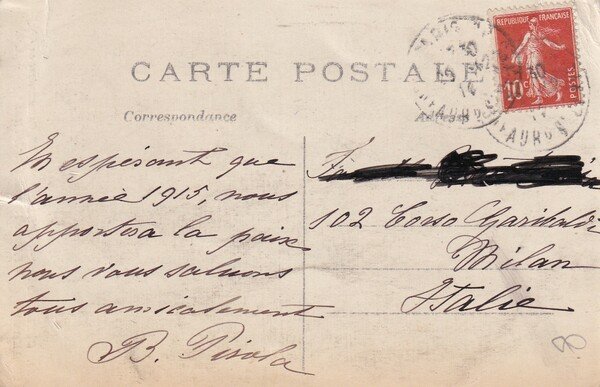 CARTE POSTALE
Correspondance
Adresse
RÉPUBLIQUE FRANÇAISE
10c
POSTES
En espérant que
l'année 1915, nous
apportera la paix
nous vous saluons
tous amicalement
B. Pirola
102 Corso Garibaldi
Milan
Italie